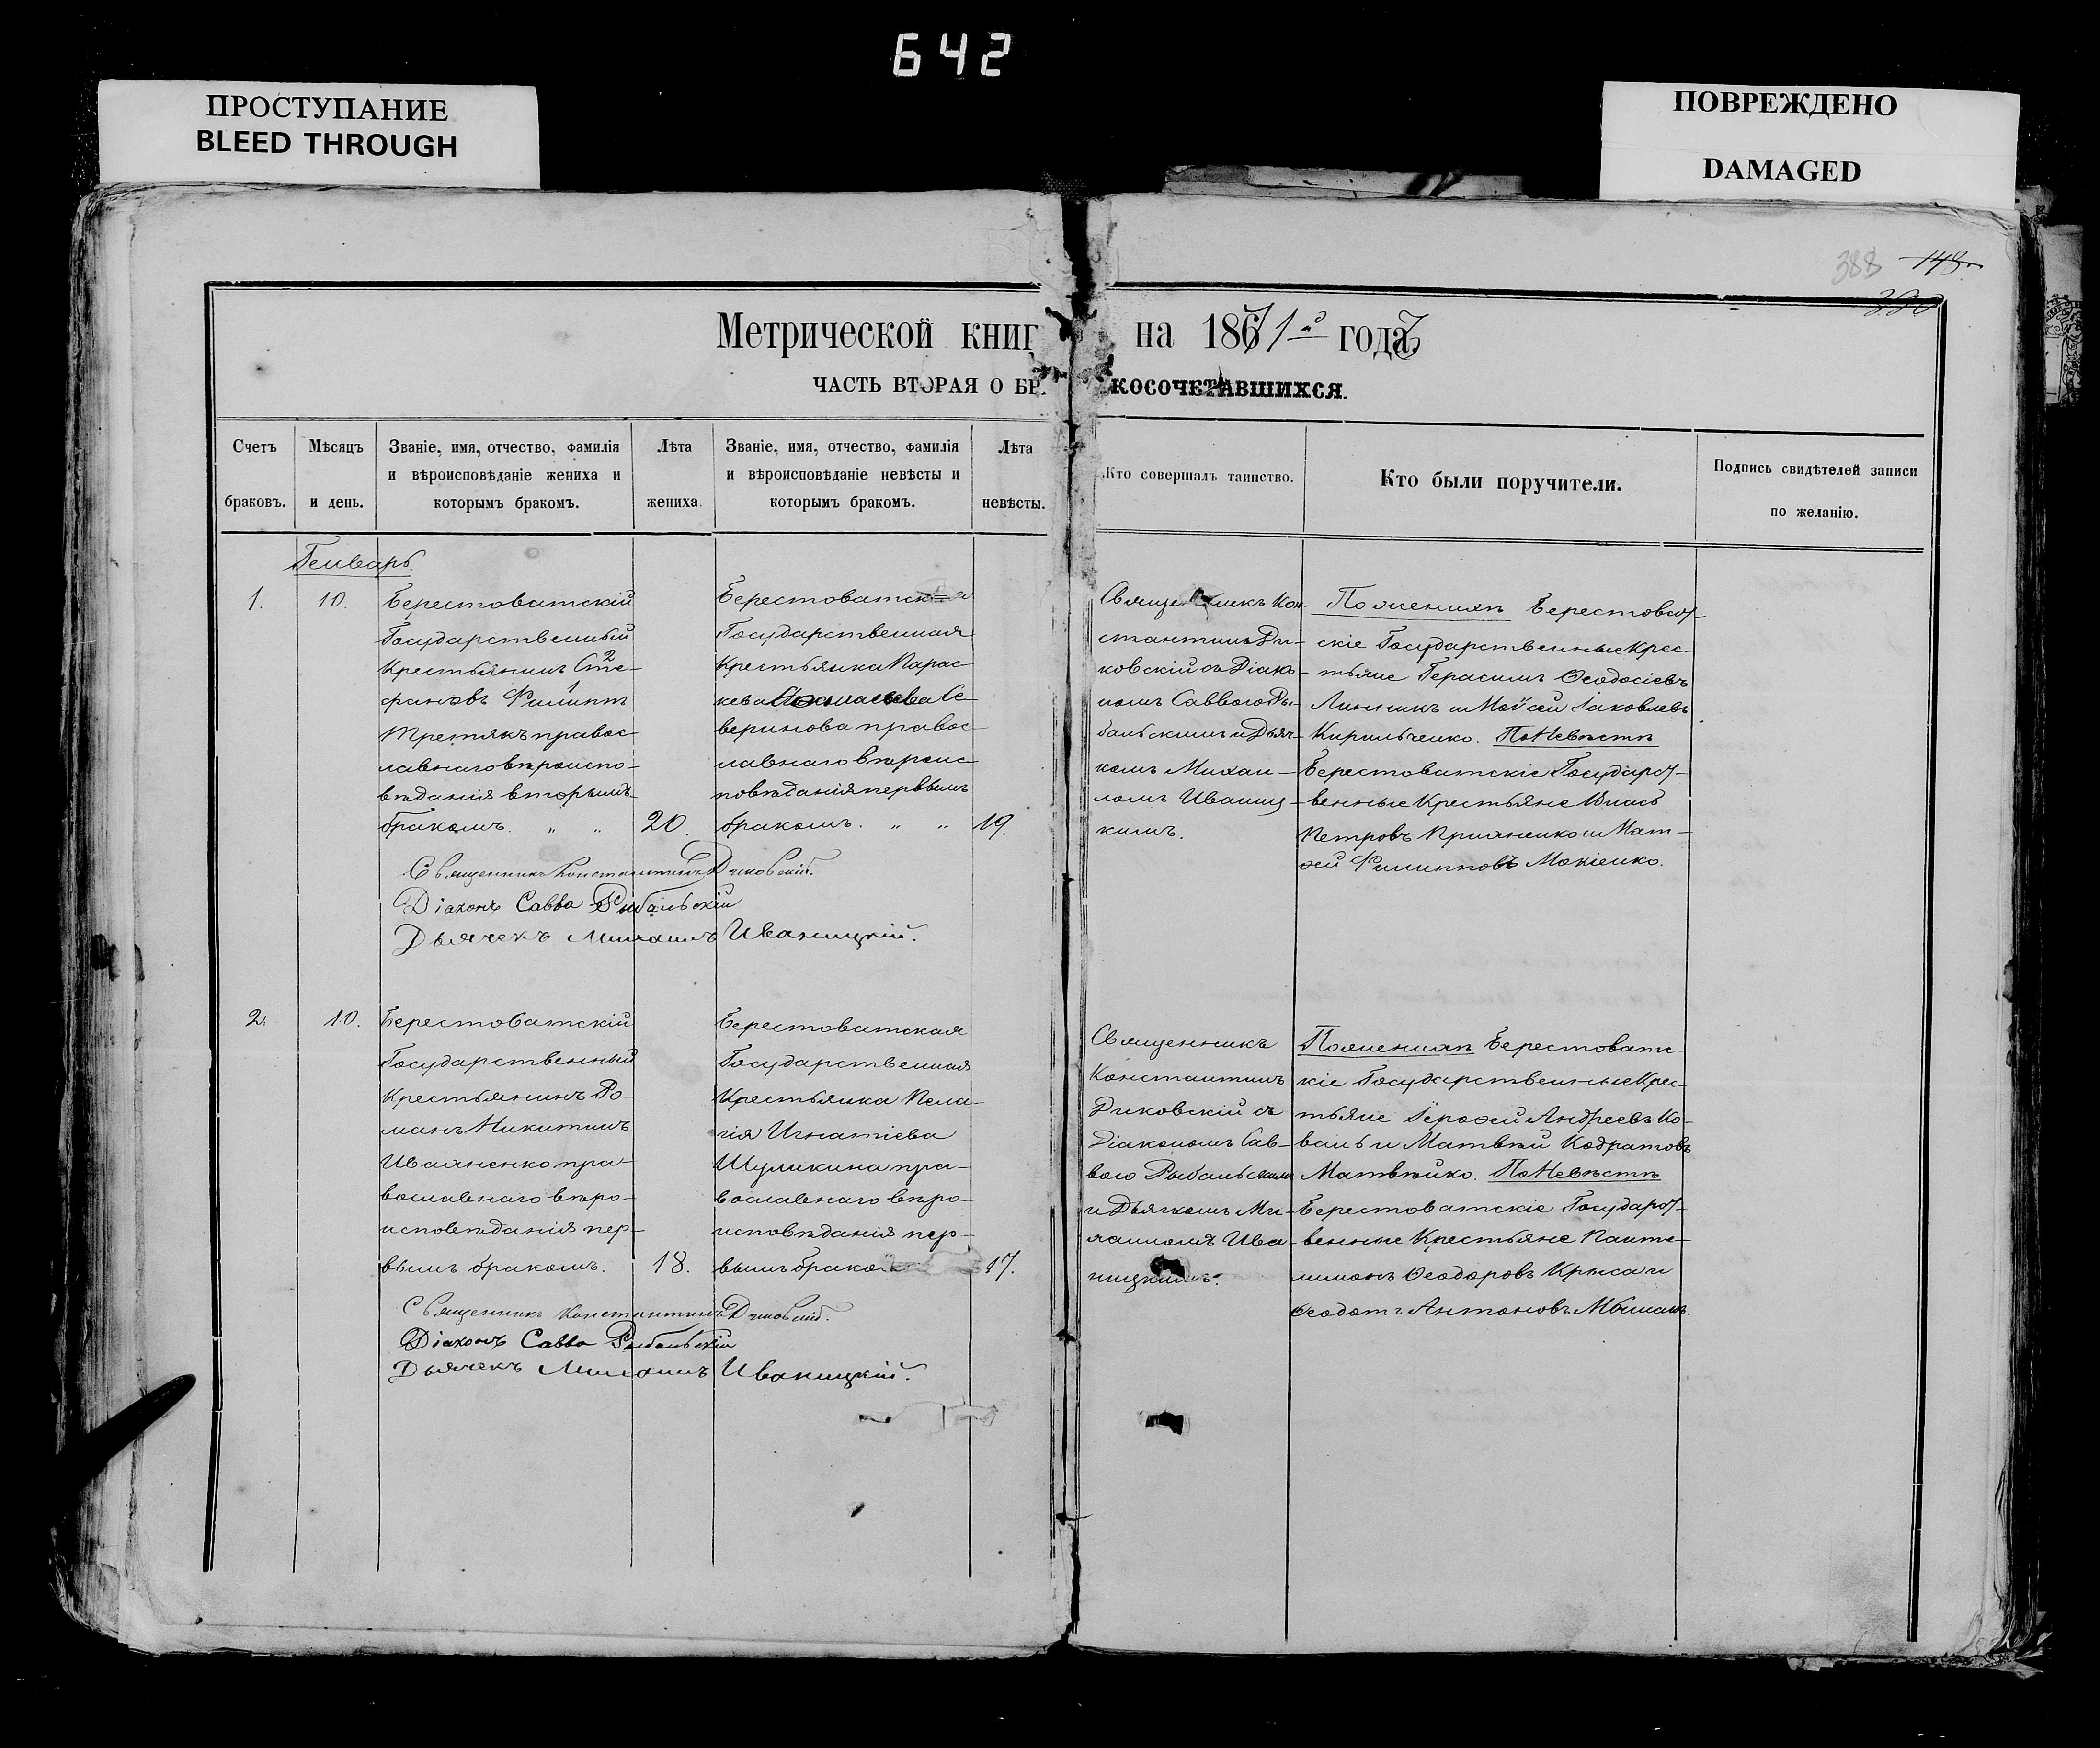 642
ПРОСТУПАНИЕ
BLEED THROUGH
ПОВРЕЖДЕНО
DAMAGED
388 148.
Метрической книг на 1871го года
ЧАСТЬ ВТОРАЯ О БР КОСОЧЕТАВШИХСЯ.
Счетъ
браковъ.
Мѣсяцъ
и день.
Званіе, имя, отчество, фамилія
и вѣроисповѣданіе жениха и
которымъ бракомъ.
Лѣта
жениха.
Званіе, имя, отчество, фамилія
и вѣроисповѣданіе невѣсты и
которымъ бракомъ.
Лѣта
невѣсты.
Кто совершалъ таинство.
Кто были поручители.
Подпись свидѣтелей записи
по желанію.
Генварь.
1.
10.
Берестоватскій
Государственный
Крестьянинъ Сте-
2
фановъ Филиппъ
1
Третякъ правос
лавнаго вѣроиспо-
вѣданія вторымъ
бракомъ. „ „
20.
Берестоватская
Государственная
Крестьянка Парас
кева Се
веринова правос
лавнаго вѣроис
повѣданія первымъ
бракомъ. „ „
19.
Священникъ Кон-
стантинъ Ди-
ковскій съ Діако-
номъ Саввою Ры-
бальскимъ и Дьяч-
комъ Михаи-
ломъ Иваниц-
кимъ.
По женихѣ Берестоват-
скіе Государственные Крес-
тьяне Герасимъ Ѳеодосіевъ
Линникъ и Моѵсей Іаковлевъ
Кирильченко. По Невѣстѣ
Берестоватскіе Государст-
венные Крестьяне Власъ
Петровъ и Мат-
ѳей Филипповъ Мокіенко.
Священникъ Константинъ Диковскій.
Діаконъ Савва Рыбальскій
Дьячекъ Михаилъ Иваницкій.
2.
10.
Берестоватскій
Государственный
Крестьянинъ Ро-
манъ Никитинъ
Иваненко пра-
вославнаго вѣро-
исповѣданія пер-
вымъ бракомъ.
18.
Берестоватская
Государственная
Крестьянка Пела-
гія Игнатіева
Шуликина пра-
вославнаго вѣро-
исповѣданія пер-
вымъ брако
17.
Священникъ
Константинъ
Диковскій съ
Діакономъ Сав-
вою Рыбальскимъ
и Дьячкомъ Ми-
хаиломъ Ива-
ницкимъ.
По женихѣ Берестоватс-
кіе Государственные Крес-
тьяне Іероѳей Андреевъ Ко-
валь и Матвѣй Кодратовъ
Матвѣйко. По Невѣстѣ
Берестоватскіе Государст-
венные Крестьяне Панте-
лимонъ Ѳеодоровъ Крыса и
Ѳеодотъ Антоновъ
Священникъ Константинъ Диковскій.
Діаконъ Савва Рыбальскій
Дьячекъ Михаилъ Иваницкій.